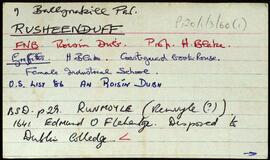 9 Ballynakill Par.
P120/1/3/60(1)
RUSHEENDUFF
FNB. Roisin Dubh. Prop. H. Blake.
H. Blake. Coastguard Boat house.
Female Industrial School.
O.S. List 86 AN ROISIN DUBH
BSD. p29. RUNMOYLE (Renvyle (?))
1641 Edmund O Flahertye. Disposed to
Dublin Colledge. <